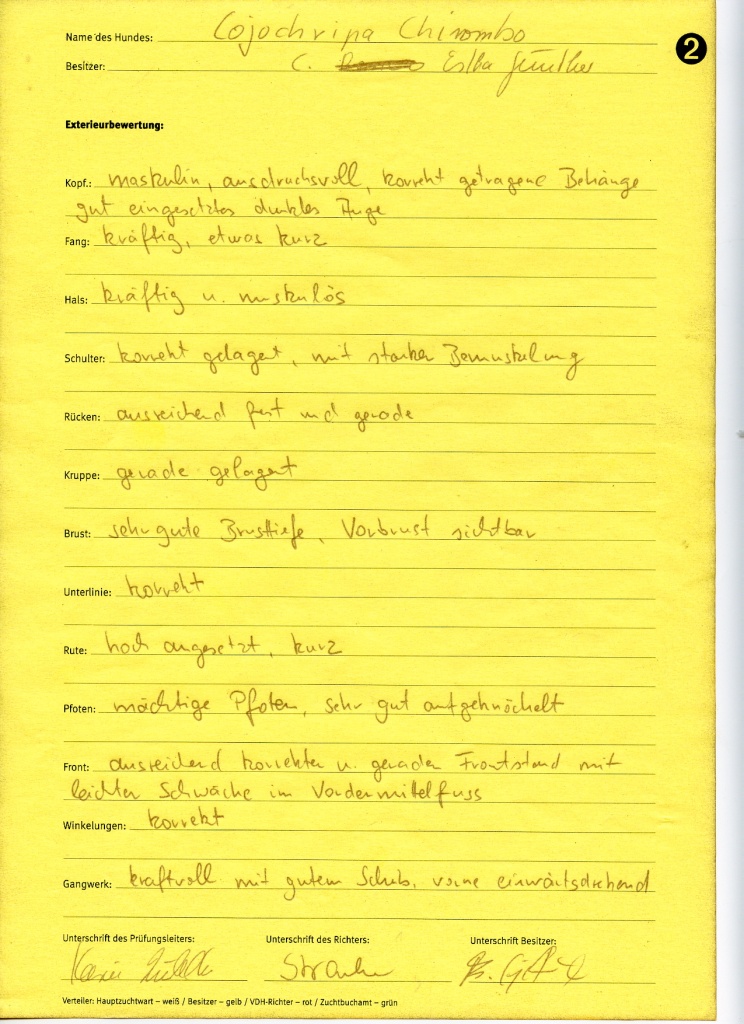 Name des Hundes: Cojochripa Chirombo
❷
Besitzer: C. Elba Günther
Exterieurbewertung:
Kopf.: maskulin, ausdrucksvoll, korrekt getragene Behänge
gut eingesetztes dunkles Auge
Fang: kräftig, etwas kurz
Hals: kräftig u. muskulös
Schulter: korrekt gelagert, mit starker Bemuskelung
Rücken: ausreichend fest und gerade
Kruppe: gerade gelagert
Brust: sehr gute Brusttiefe, Vorbrust sichtbar
Unterlinie: korrekt
Rute: hoch angesetzt, kurz
Pfoten: mächtige Pfoten, sehr gut aufgeknöchelt
Front: ausreichend korrekter u. gerader Frontstand mit
leichter Schwäche im Vordermittelfuss
Winkelungen: korrekt
Gangwerk: kraftvoll mit gutem Schub, vorne einwärtsdrehend
Unterschrift des Prüfungsleiters: Unterschrift des Richters: Unterschrift Besitzer:
Verteiler: Hauptzuchtwart – weiß / Besitzer – gelb / VDH-Richter – rot / Zuchtbuchamt – grün